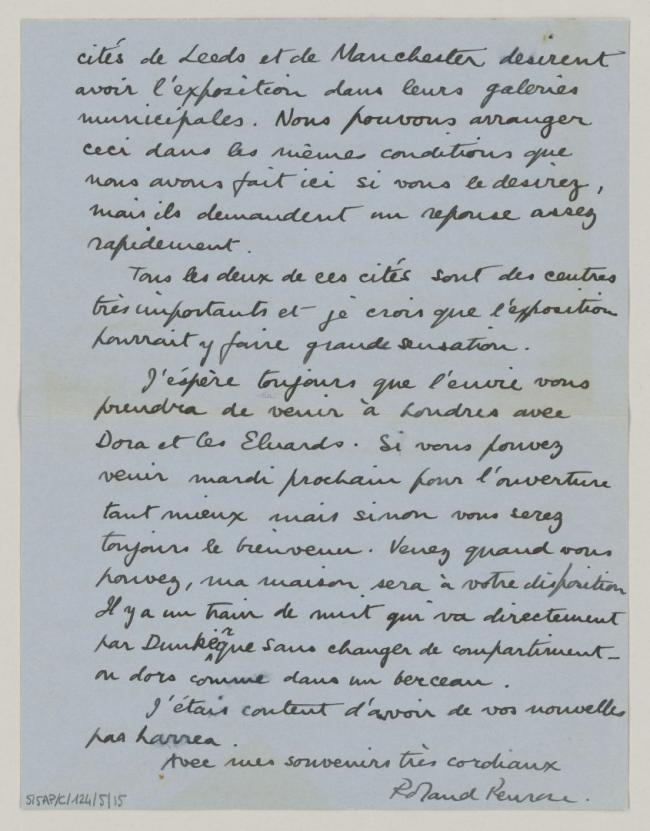 cités de Leeds et de Manchester desirent
avoir l'exposition dans leurs galeries
municipales. Nous pouvons arranger
ceci dans les mêmes conditions que
nous avons fait ici si vous le desirez,
mais ils demandent un reponse assez
rapidement.
Tous les deux de ces cités sont des centres
très importants et je crois que l'exposition
pourrait y faire grande sensation.
J'éspère toujours que l'envie vous
prendra de venir à Londres avec
Dora et les Eluards. Si vous pouvez
venir mardi prochain pour l'ouverture
tant mieux mais sinon vous serez
toujours le bienvenu. Venez quand vous
pouvez, ma maison sera à votre disposition
Il y a un train de nuit qui va directement
par Dunkèrque sans changer de compartiment -
on dors comme dans un berceau.
J'étais content d'avoir de vos nouvelles
par Larrea.
Avec mes souvenirs très cordiaux
Roland Penrose.
515AP/C/124/5/15